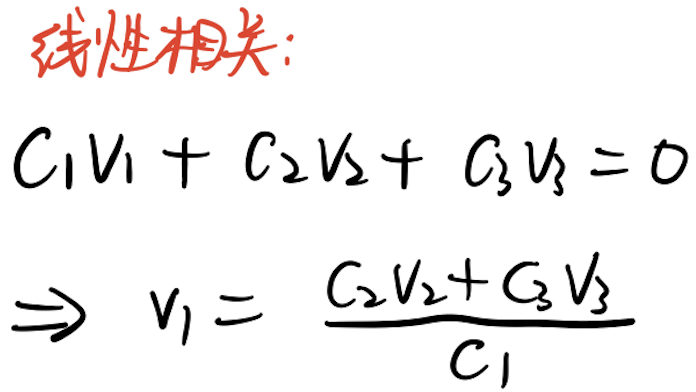 线性相关:
C₁V₁ + C₂V₂ + C₃V₃ = 0
⇒ V₁ = (C₂V₂ + C₃V₃) / C₁